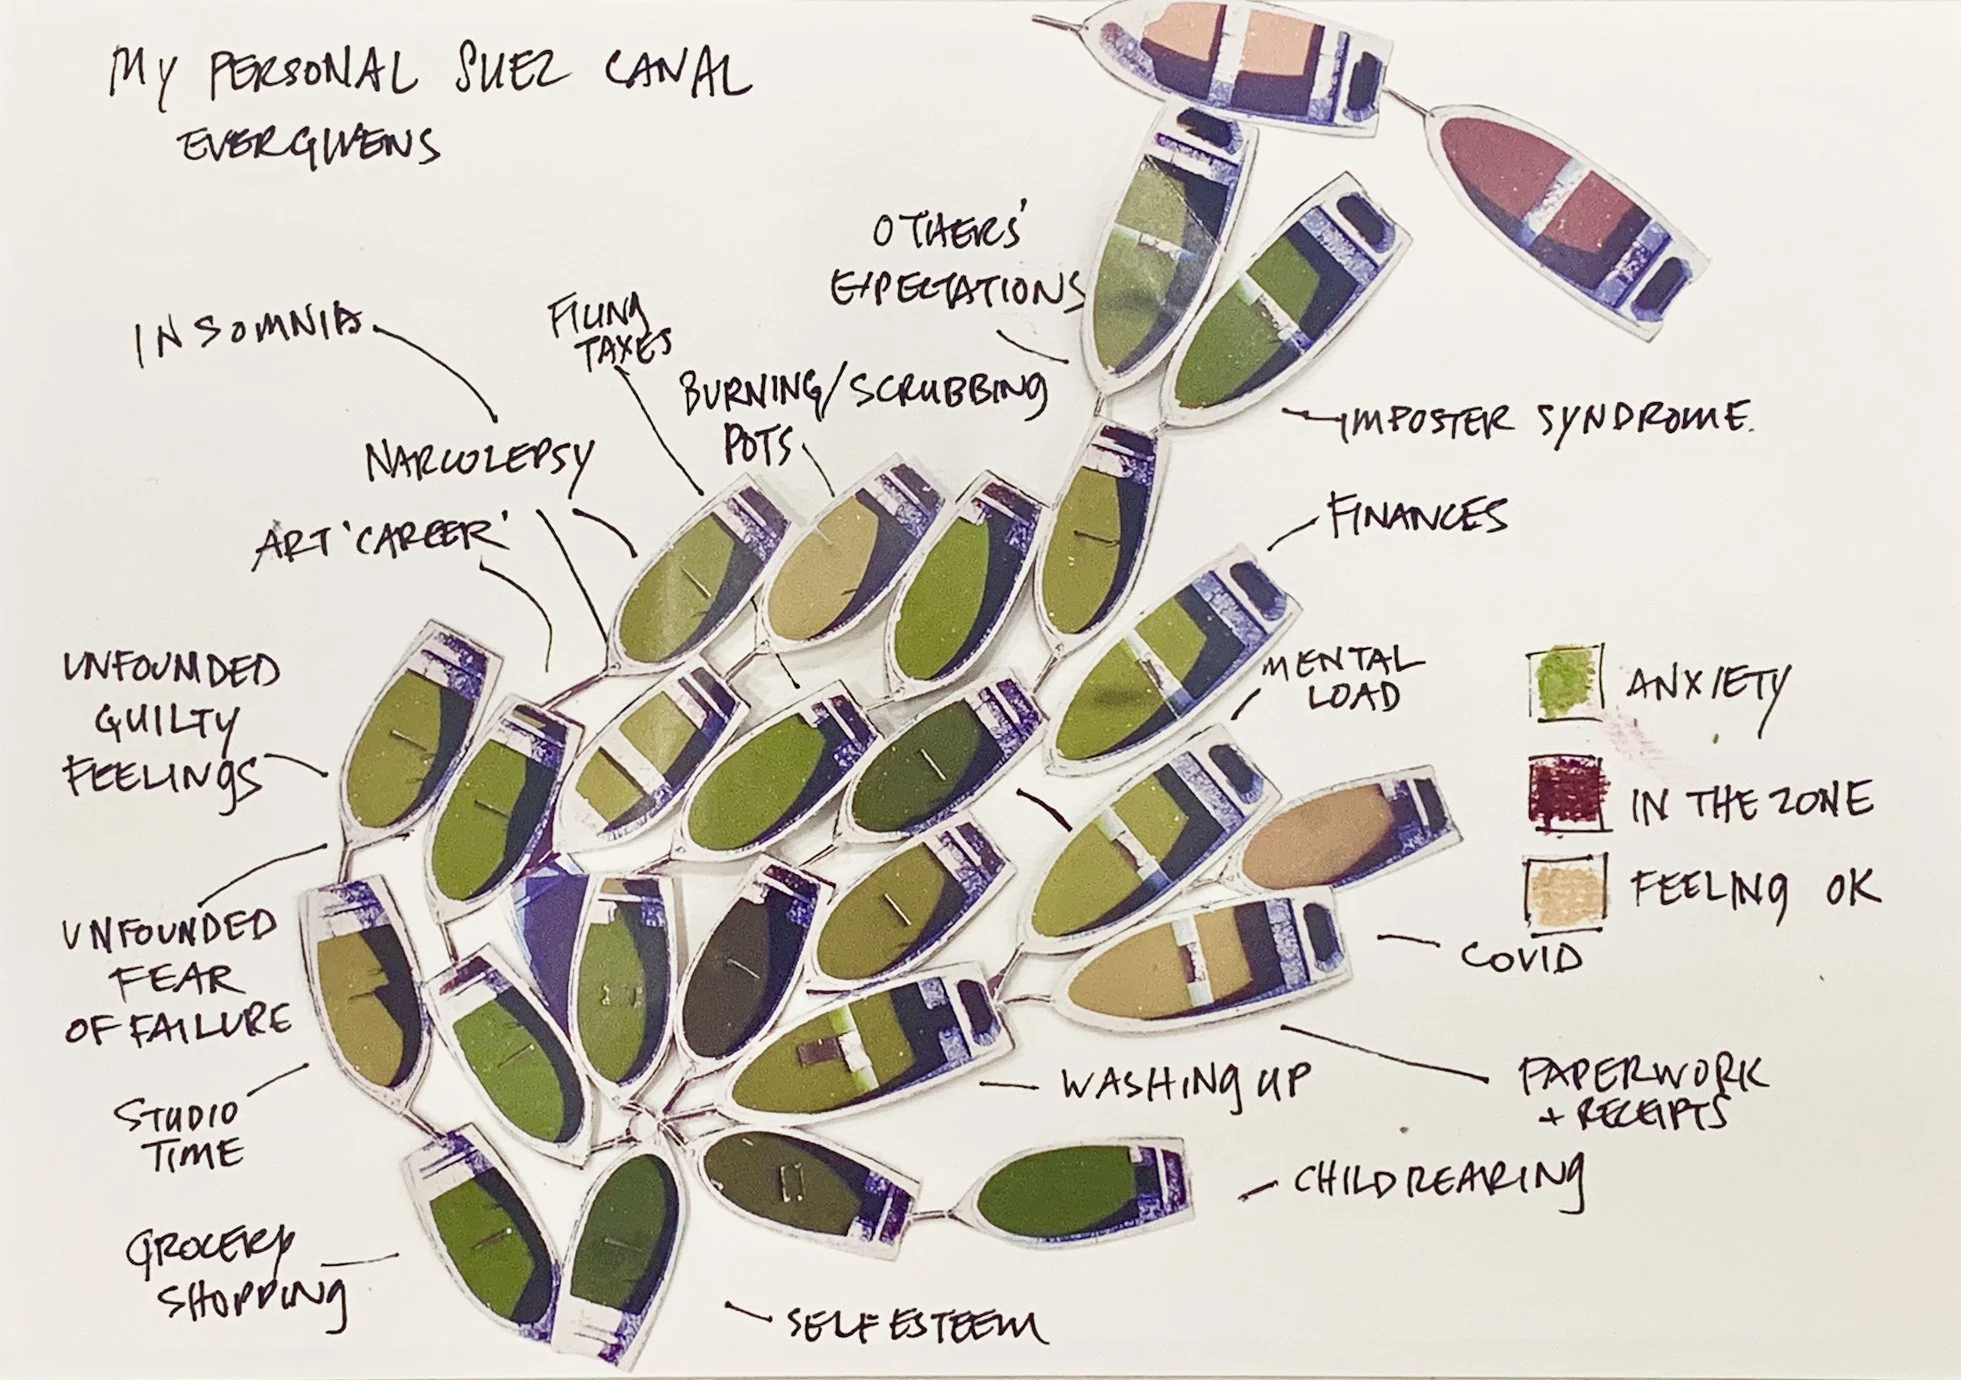 MY PERSONAL SUEZ CANAL
EVERGIVENS
OTHERS'
EXPECTATIONS
INSOMNIA
FILING
TAXES
BURNING/SCRUBBING
POTS
IMPOSTER SYNDROME.
NARCOLEPSY
ART 'CAREER'
FINANCES
UNFOUNDED
GUILTY
FEELINGS
MENTAL
LOAD
ANXIETY
IN THE ZONE
FEELING OK
UNFOUNDED
FEAR
OF FAILURE
COVID
STUDIO
TIME
WASHING UP
PAPERWORK
+ RECEIPTS
CHILDREARING
GROCERY
SHOPPING
SELF ESTEEM